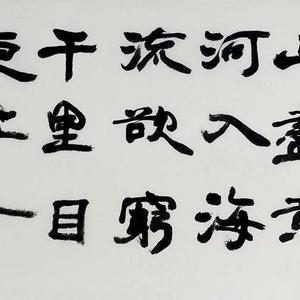 山盡黃
河入海
流欲窮
千里目
更上一